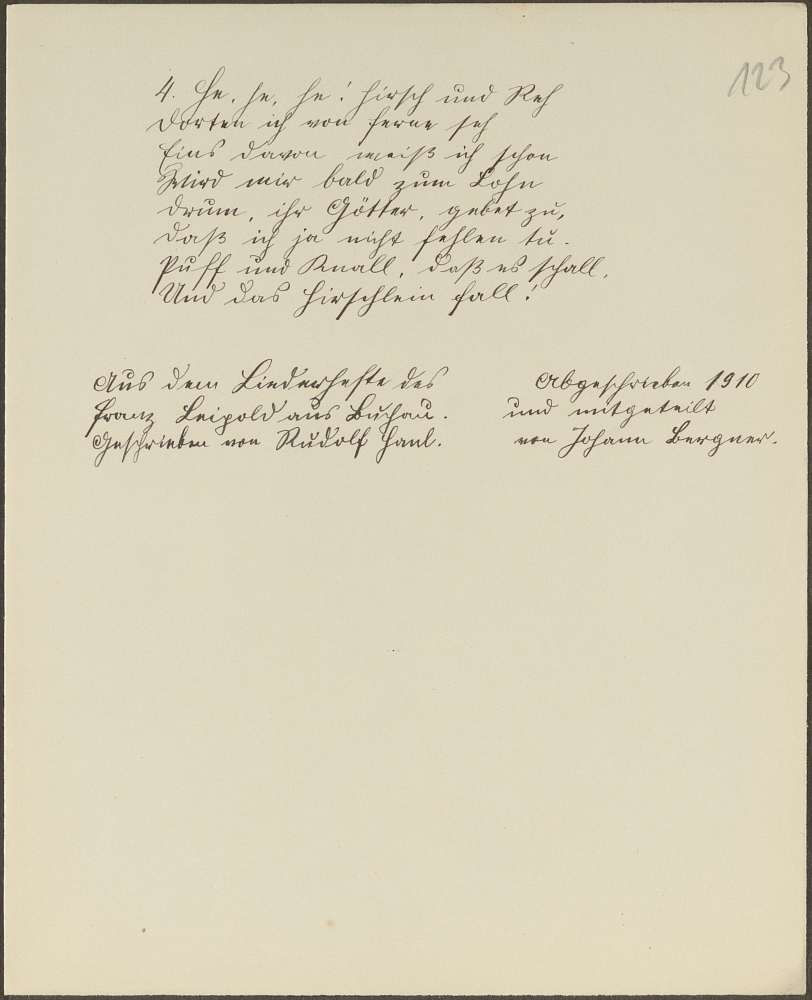 123
4. He, he, he! Hirsch und Reh
Dorten ich von ferne seh
Eins davon weiß ich schon
Wird mir bald zum Lohn
Drum, ihr Götter, gebet zu,
Daß ich ja nicht fehlen tu.
Puff und Knall, daß es schall,
Und das Hirschlein fall!
Aus dem Liederhefte des
Franz Leipold aus Buchau.
Geschrieben von Rudolf Hanl.
Abgeschrieben 1910
und mitgeteilt
von Johann Bergner.